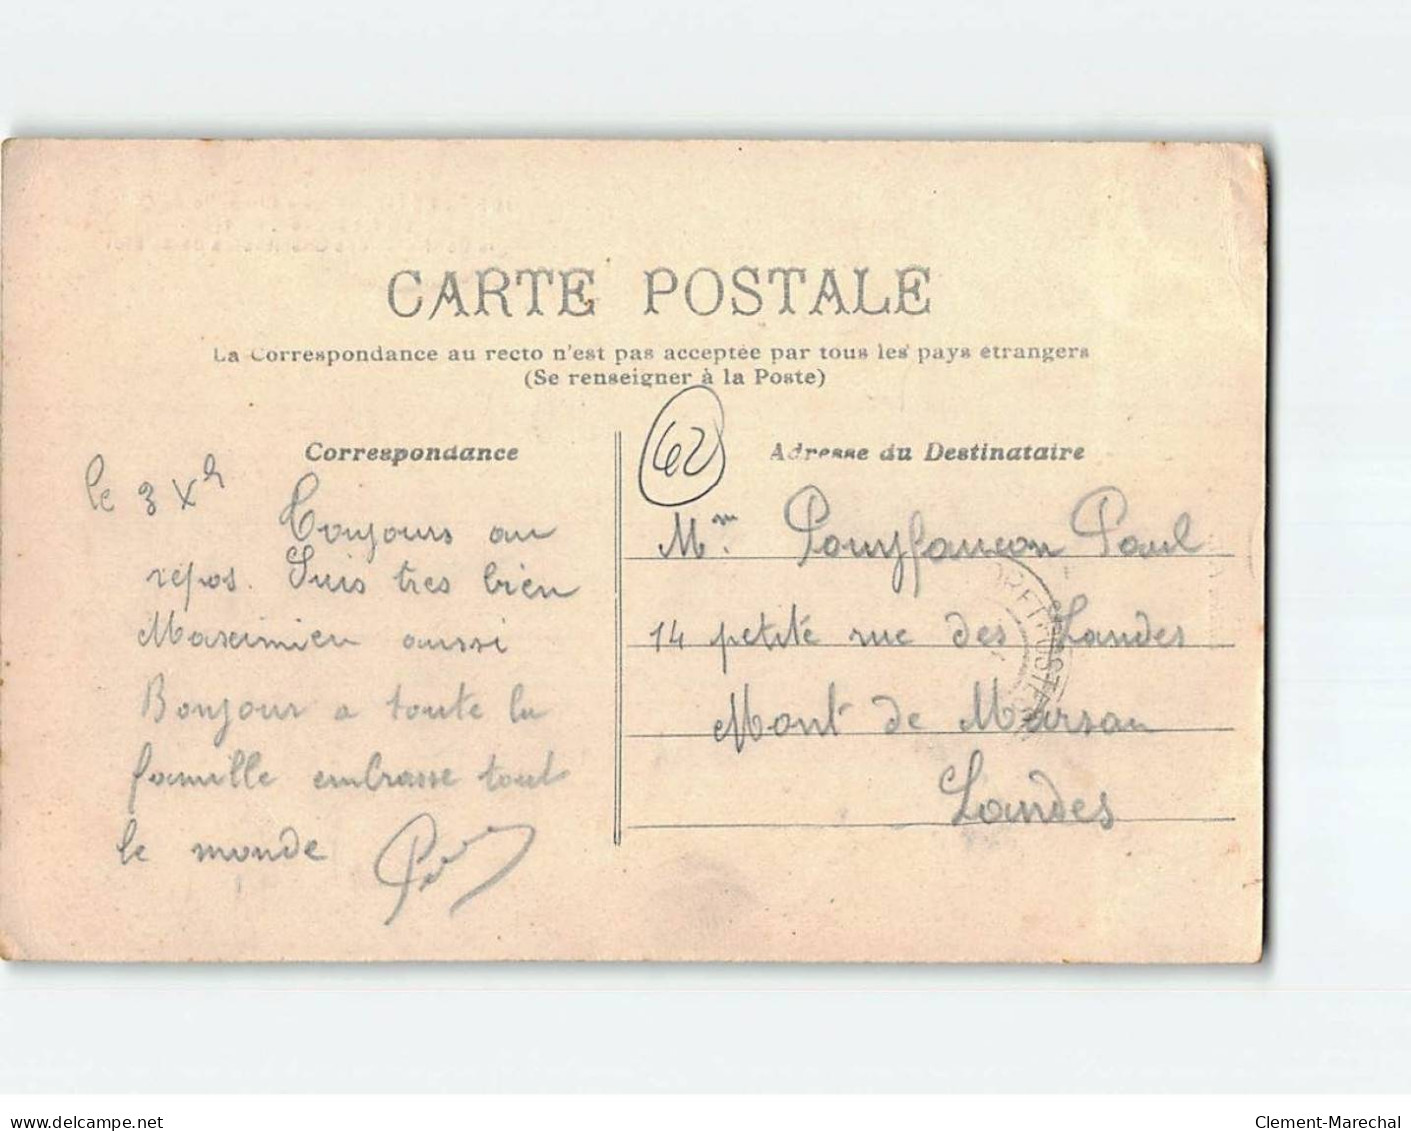 CARTE POSTALE
La Correspondance au recto n'est pas acceptée par tous les pays étrangers
(Se renseigner à la Poste)
Correspondance
le 3 Xh
Toujours au
repos. Suis tres bien
Maximien aussi
Bonjour a toute la
famille embrasse tout
le monde
62
Adresse du Destinataire
Mm. Pouyfaucon Paul
14 petite rue des Landes
Mont de Marsan
Landes
www.delcampe.net
Clement-Marechal